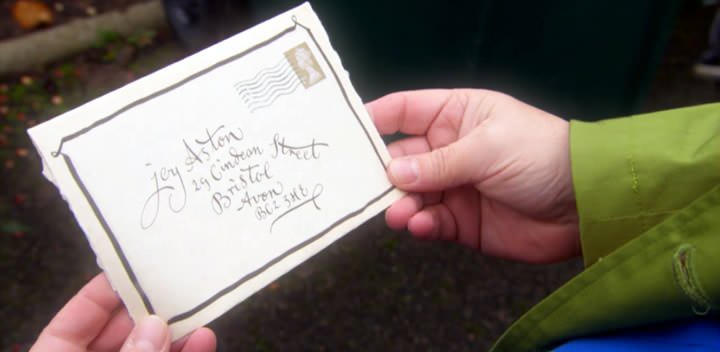 jey Aston
29 Cindean Street
Bristol
Avon
BC2 3HE